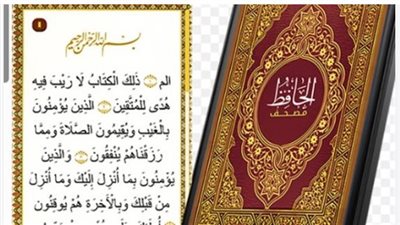 بسم الله الرحمن الرحيم
الم ذَلِكَ الْكِتَابُ لَا رَيْبَ فِيهِ
هُدًى لِلْمُتَّقِينَ الَّذِينَ يُؤْمِنُونَ
بِالْغَيْبِ وَيُقِيمُونَ الصَّلَاةَ وَمِمَّا
رَزَقْنَاهُمْ يُنْفِقُونَ وَالَّذِينَ
يُؤْمِنُونَ بِمَا أُنْزِلَ إِلَيْكَ وَمَا أُنْزِلَ
مِنْ قَبْلِكَ وَبِالْآخِرَةِ هُمْ يُوقِنُونَ
الحافظ
مصحف